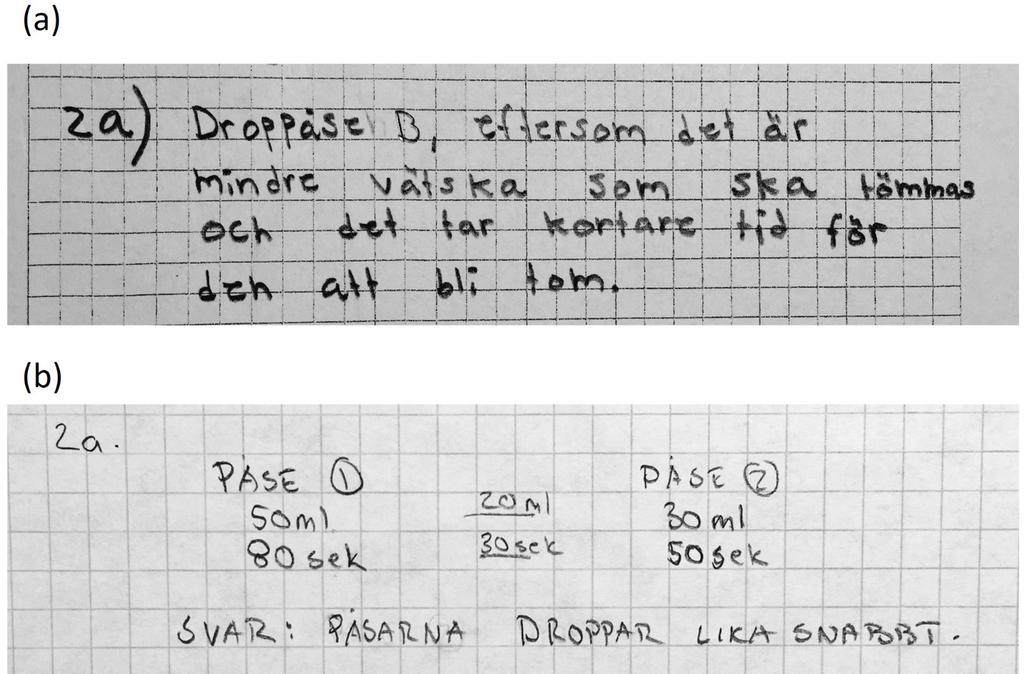 (a)
2a) Droppåse B, eftersom det är
mindre vätska som ska tömmas
och det tar kortare tid för
den att bli tom.
(b)
2a.
PÅSE ① PÅSE ②
50ml 20ml 30ml
80sek 30sek 50sek
SVAR: PÅSARNA DROPPAR LIKA SNABBT.